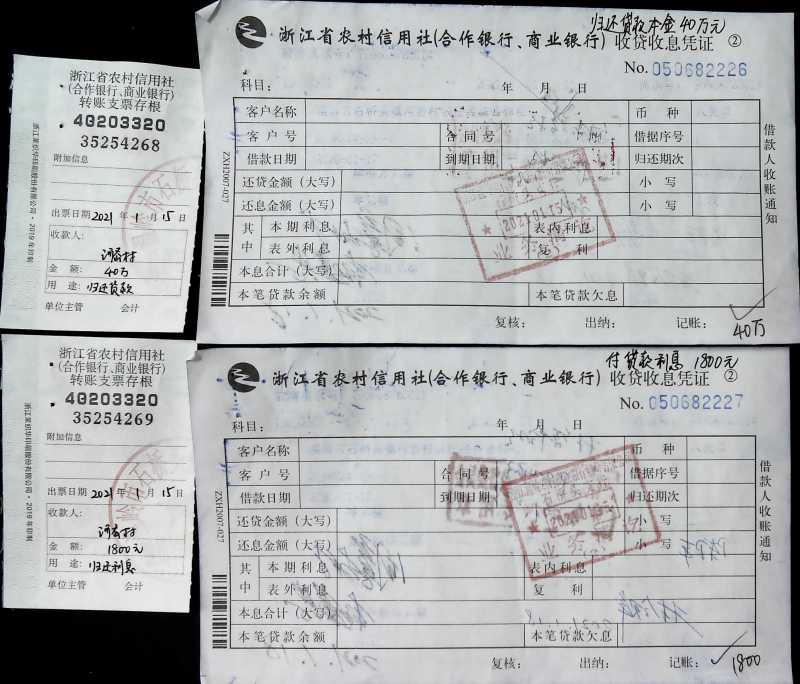 浙江省农村信用社
(合作银行、商业银行)
转账支票存根
40203320
35254268
附加信息
出票日期 2021 年 1 月 15 日
收款人:
金 额: 40万
用 途: 归还贷款
单位主管 会计
浙江某织华印刷股份有限公司·2019年印制
归还贷款本金40万元
浙江省农村信用社(合作银行、商业银行) 收贷收息凭证 ②
No. 050682226
科目: 年 月 日
客户名称 币 种
客 户 号 合 同 号 借据序号
借款日期 到期日期 归还期次
还贷金额(大写) 小 写
还息金额(大写) 小 写
其 本期利息 表内利息
中 表外利息 复 利
本息合计(大写)
本笔贷款余额 本笔贷款欠息
复核: 出纳: 记账:
40万
借款人收账通知
ZXH2007-027
浙江省农村信用社
(合作银行、商业银行)
转账支票存根
40203320
35254269
附加信息
出票日期 2021 年 1 月 15 日
收款人:
金 额: 1800元
用 途: 归还利息
单位主管 会计
付贷款利息 1800元
浙江省农村信用社(合作银行、商业银行) 收贷收息凭证 ②
No. 050682227
科目: 年 月 日
客户名称 币 种
客 户 号 合 同 号 借据序号
借款日期 到期日期 归还期次
还贷金额(大写) 小 写
还息金额(大写) 小 写
其 本期利息 表内利息
中 表外利息 复 利
本息合计(大写)
本笔贷款余额 本笔贷款欠息
复核: 出纳: 记账:
1800
借款人收账通知
ZXH2007-027